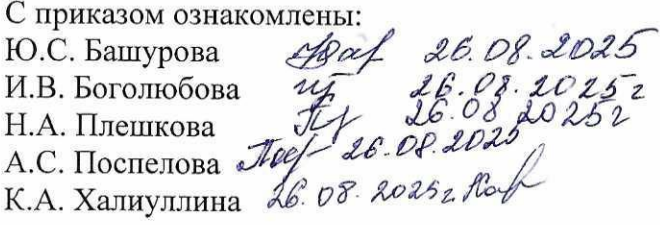 С приказом ознакомлены:
Ю.С. Башурова 26.08.2025
И.В. Боголюбова 26.08.2025г
Н.А. Плешкова 26.08 2025г
А.С. Поспелова 26.08.2025
К.А. Халиуллина 26.08.2025г.